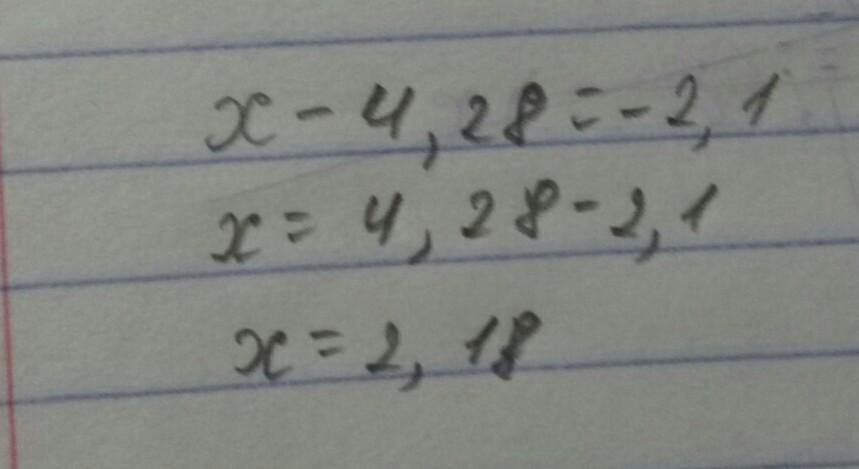 x - 4,28 = -2,1
x = 4,28 - 2,1
x = 2,18